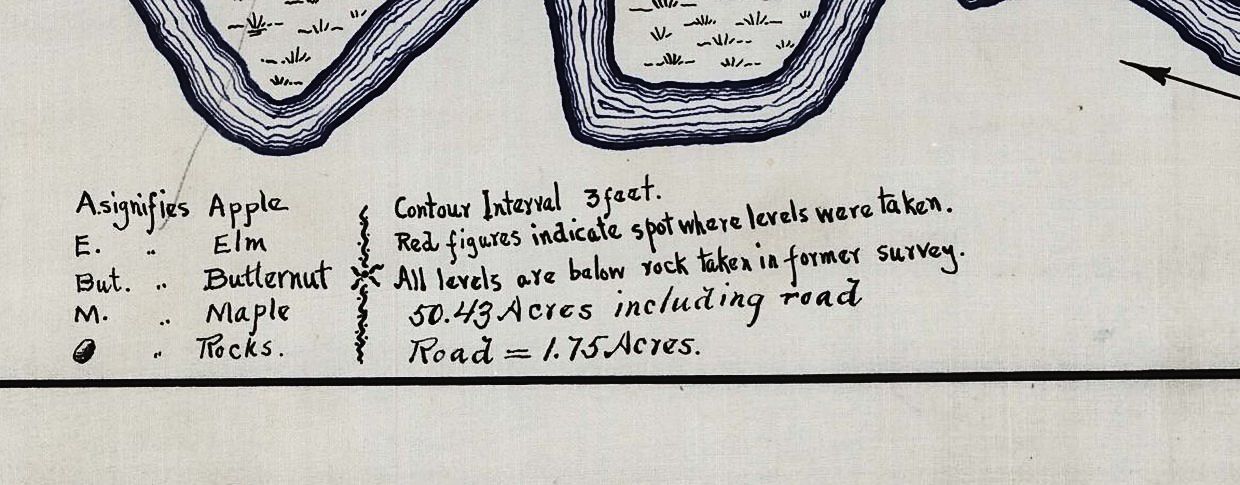 A. signifies Apple
E. " Elm
But. " Butternut
M. " Maple
" Rocks.
Contour Interval 3 feet.
Red figures indicate spot where levels were taken.
All levels are below rock taken in former survey.
50.43 Acres including road
Road = 1.75 Acres.